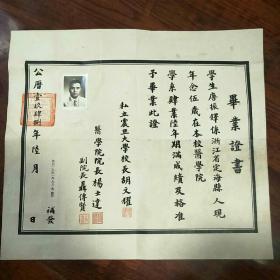 畢業證書
學生唐振鐸係浙江省定海縣人現
年念伍歲在本校醫學院
學系肄業陸年期滿成績及格准
予畢業此證
私立震旦大學校長胡文耀
醫學院院長楊士達
副院長聶傳賢
補發
公曆壹玖肆捌年陸月 日